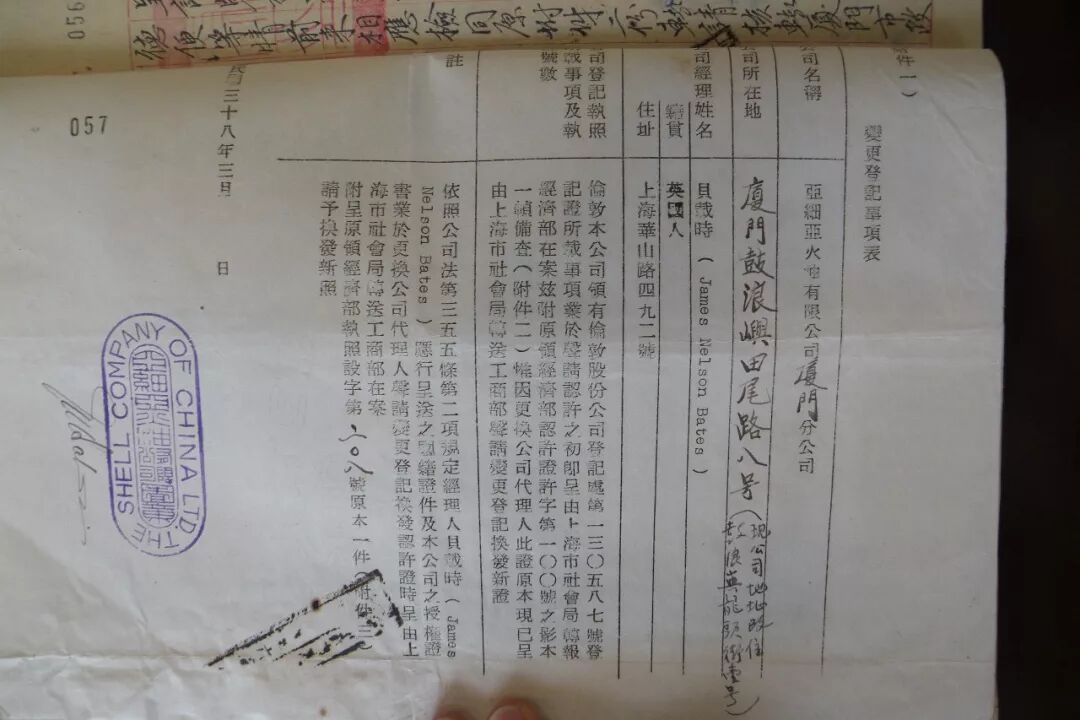 件一）
變更登記事項表
司名稱　亞細亞火油有限公司廈門分公司
司所在地　廈門鼓浪嶼田尾路八号（現公司地址改住
鼓浪嶼龍頭街壹号）
司經理姓名　貝載時（James Nelson Bates）
籍貫　英國人
住址　上海華山路四九二號
司登記執照
載事項及執
號數
倫敦本公司領有倫敦股份公司登記處第一三〇五八七號登
記證所載事項業於聲請認許之初卽呈由上海市社會局轉報
經濟部在案茲附原領經濟部認許證許字第一〇〇號之影本
一幀備查（附件二）惟因更換公司代理人此證原本現已呈
由上海市社會局轉送工商部聲請變更登記換發新證
註
依照公司法第三五五條第二項規定經理人貝載時（James
Nelson Bates）應行呈送之國籍證件及本公司之授權證
書業於更換公司代理人聲請變更登記換發認許證時呈由上
海市社會局轉送工商部在案
附呈原領經濟部執照設字第二〇八號原本一件（附件三
請予換發新照
民國三十八年三月　日
THE SHELL COMPANY OF CHINA LTD
057
056
核轉廈門市政
相應檢同原附件二份